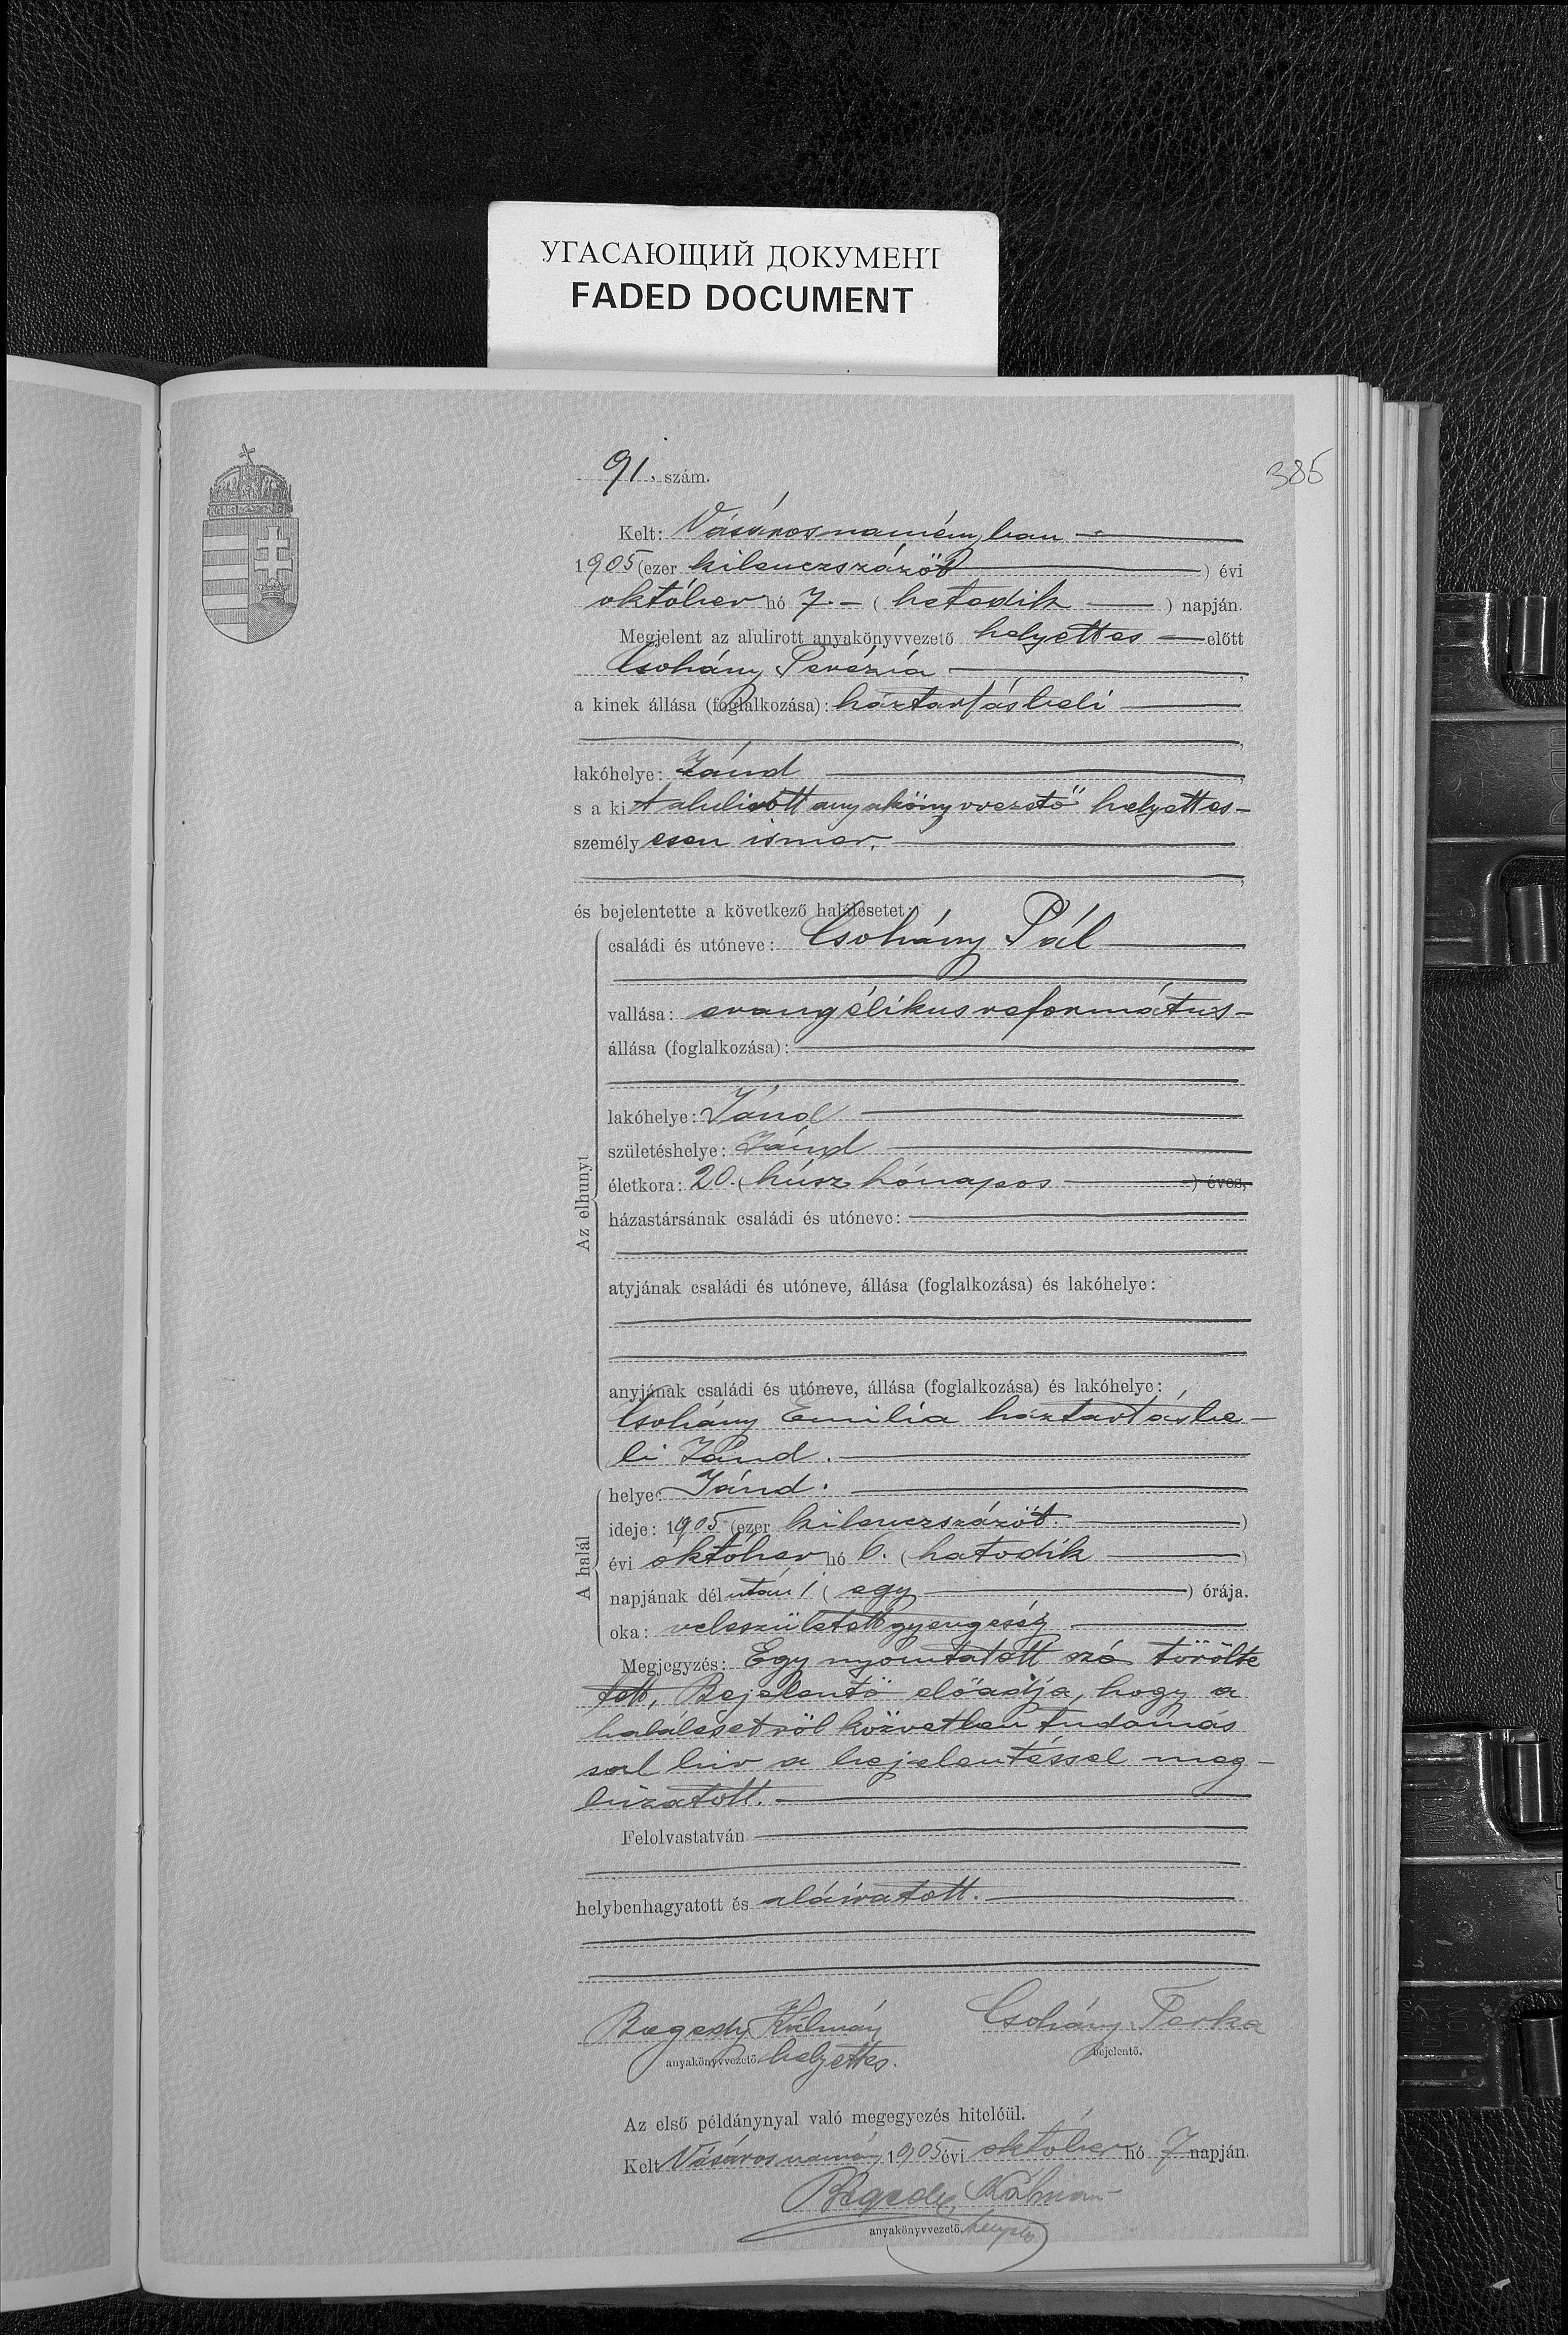 УГАСАЮЩИЙ ДОКУМЕНТ
FADED DOCUMENT
385
91. szám.
Kelt: Vásárosnaményban
1905 (ezer kilenczszázöt ) évi
október hó 7. ( hetedik ) napján.
Megjelent az alulirott anyakönyvvezető helyettes előtt
Csohány Terézia
a kinek állása (foglalkozása): háztartásbeli
lakóhelye: Jánd
s a kit alulirott anyakönyvvezető helyettes
személyesen ismer,
és bejelentette a következő halálesetet:
családi és utóneve: Csohány Pál
vallása: evangélikus református
állása (foglalkozása):
lakóhelye: Jánd
születéshelye: Jánd
Az elhunyt
életkora: 20. (húsz hónapos ) éves,
házastársának családi és utóneve:
atyjának családi és utóneve, állása (foglalkozása) és lakóhelye:
anyjának családi és utóneve, állása (foglalkozása) és lakóhelye:
Csohány Emilia háztartásbe-
li Jánd.
helye: Jánd.
ideje: 1905 (ezer kilenczszázöt. )
A halál
évi október hó 6. ( hatodik )
napjának délután 1 ( egy ) órája.
oka: veleszületett gyengeség
Megjegyzés: Egy nyomtatott szó törölte
tett, Bejelentő előadja, hogy a
halálesetről közvetlen tudomás
sal bir a bejelentéssel meg-
bizatott.
Felolvastatván
helybenhagyatott és aláiratott.
Kálmán Csohány Terka
anyakönyvvezető helyettes. bejelentő.
Az első példánynyal való megegyezés hiteléül.
Kelt Vásárosnamény 1905 évi október hó 7 napján.
Kálmán
anyakönyvvezető.